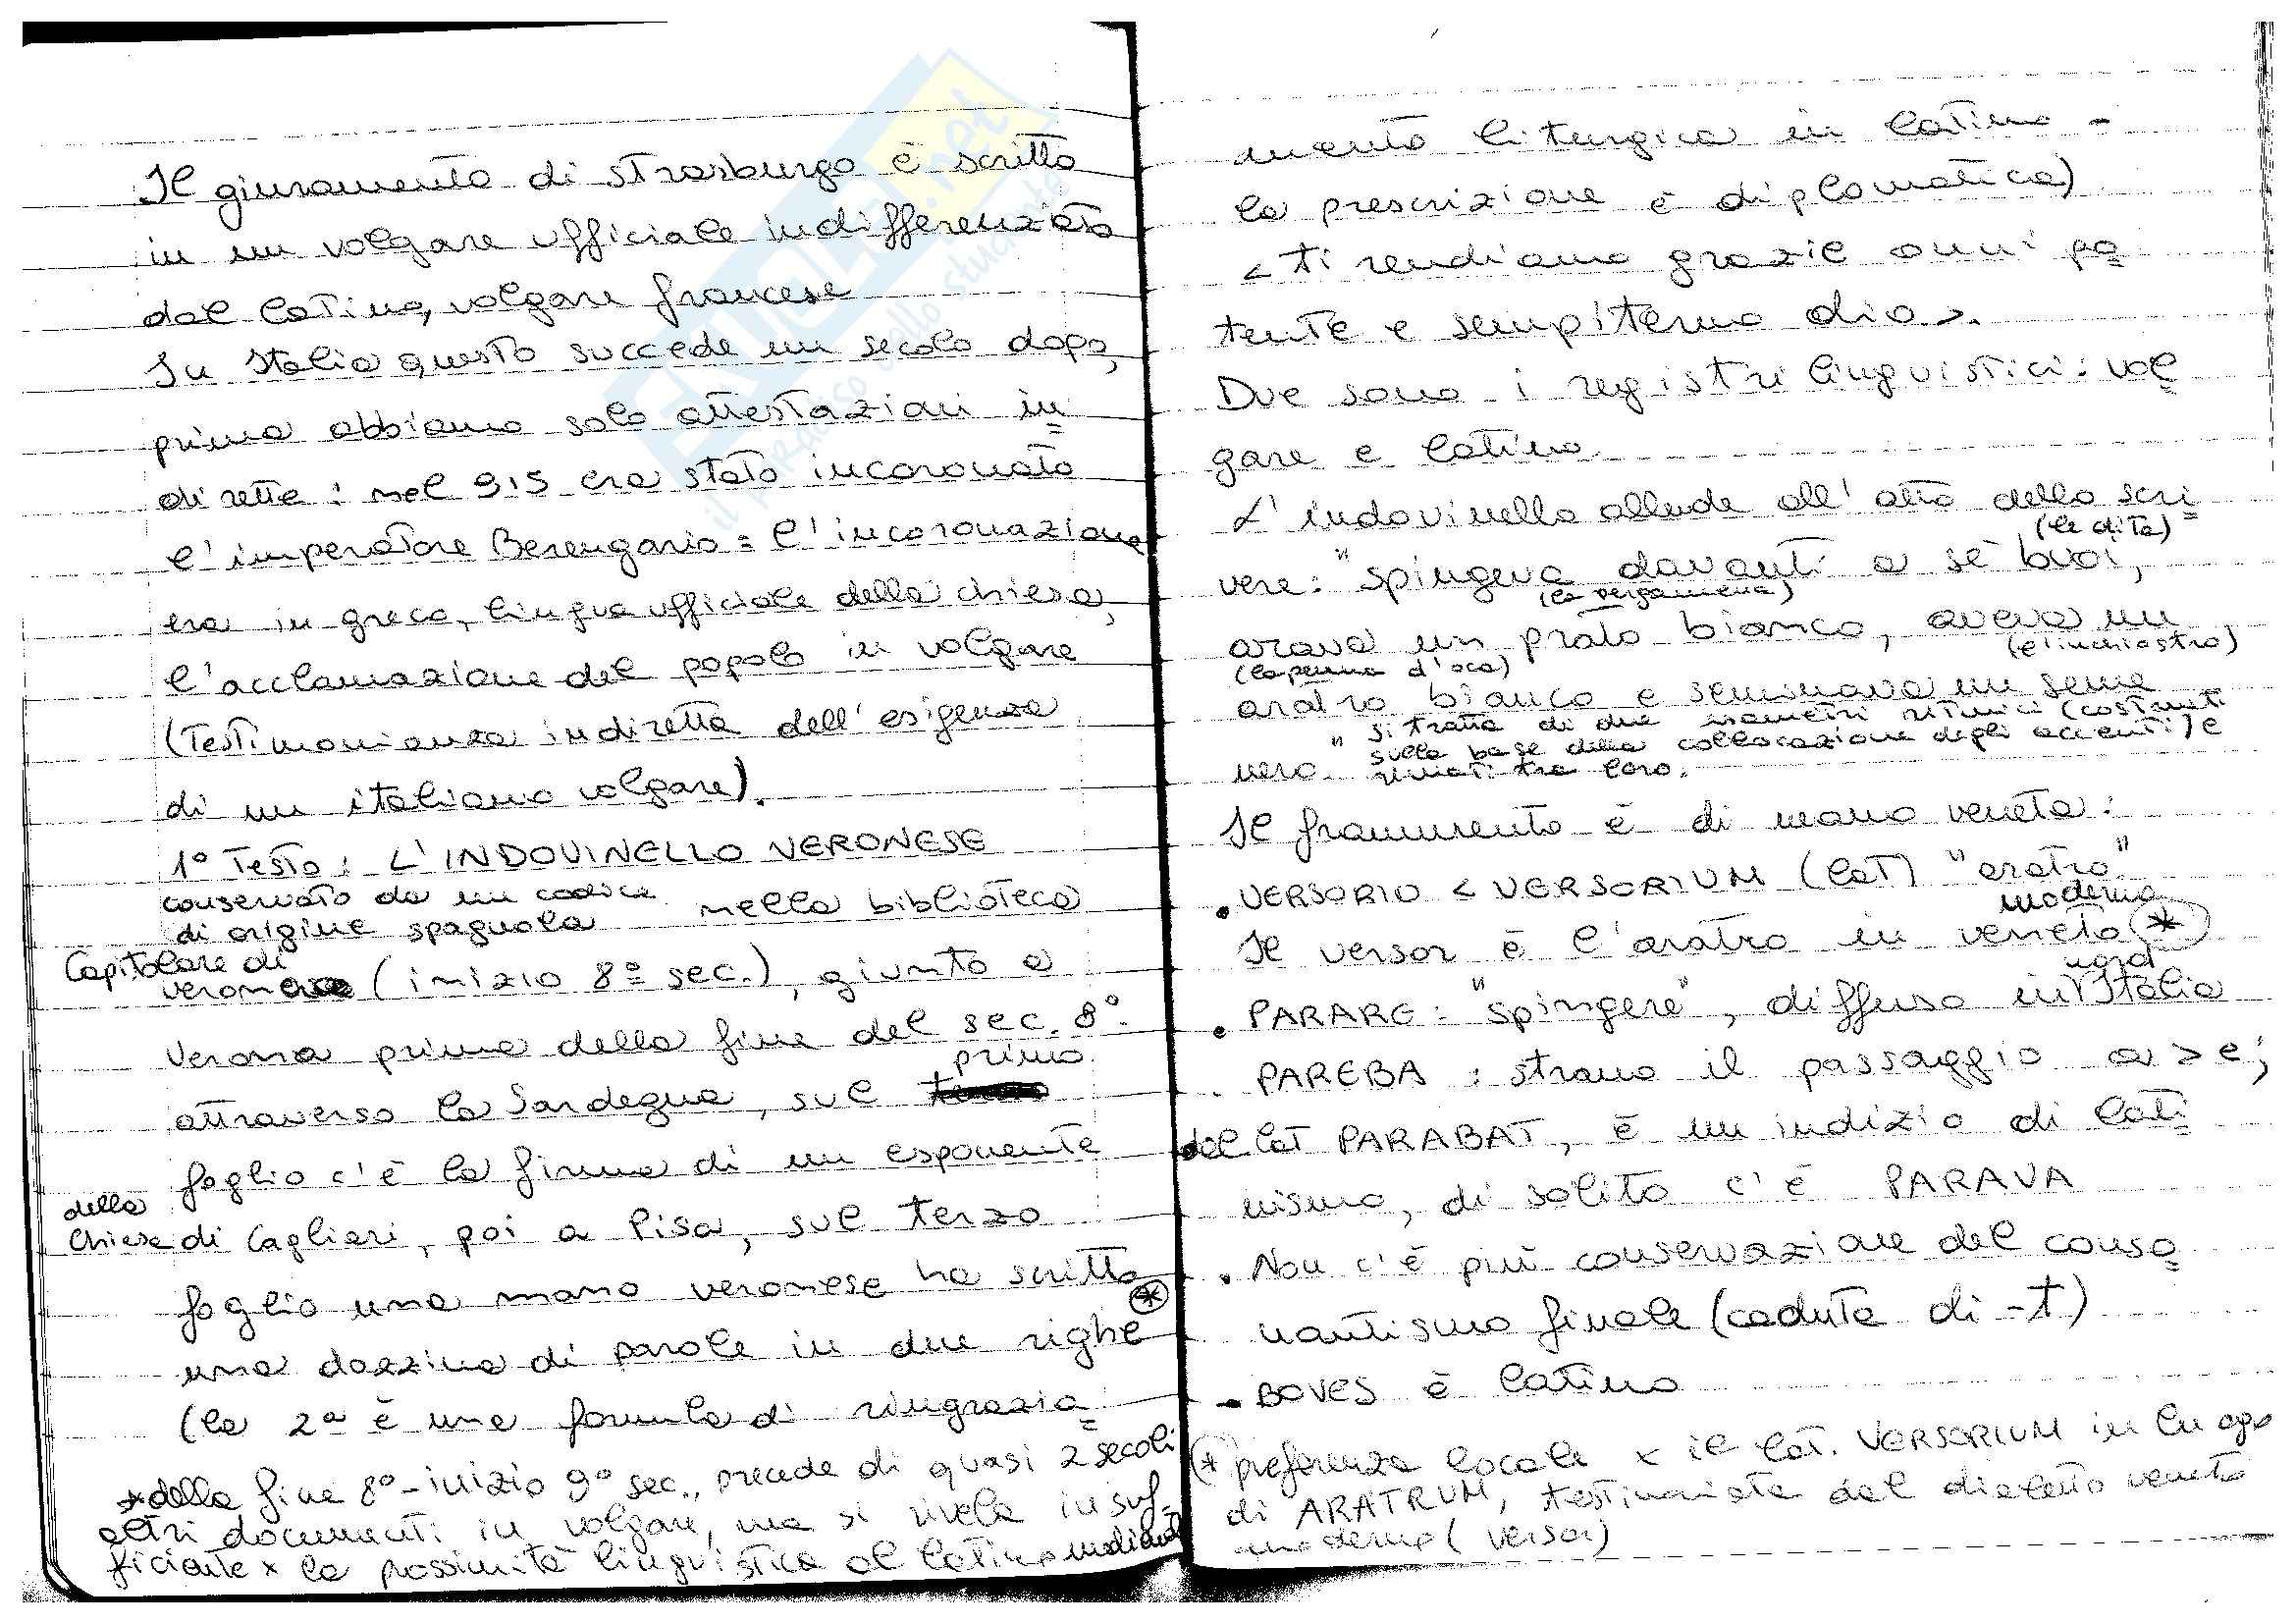 Il giuramento di Strasburgo è scritto
in un volgare ufficiale indifferenziato
dal latino, volgare francese
In Italia questo succede un secolo dopo,
prima abbiamo solo attestazioni in=
dirette: nel 915 era stato incoronato
l'imperatore Berengario = l'incoronazione
era in greco, lingua ufficiale della chiesa,
l'acclamazione del popolo in volgare
(testimonianza indiretta dell'esigenza
di un italiano volgare).
1° Testo: L'INDOVINELLO VERONESE
conservato da un codice
di origine spagnola nella biblioteca
Capitolare di
verona (inizio 8° sec.), giunto a
Verona prima della fine del sec. 8°
attraverso la Sardegna, sul primo
foglio c'è la firma di un esponente
della
chiesa di Cagliari, poi a Pisa, sul terzo
foglio una mano veronese ha scritto *
una dozzina di parole in due righe
(la 2a è una formula di ringrazia=
* della fine 8°-inizio 9° sec., precede di quasi 2 secoli
altri documenti in volgare, ma si rivela insuf-
ficiente x la prossimità linguistica al latino
mento liturgica in latino -
la prescrizione è diplomatica)
< ti rendiamo grazie onni po=
tente e sempiterno dio >.
Due sono i registri linguistici: vol=
gare e latino.
L'indovinello allude all'atto dello scri=
(le dita)
vere: "spingeva davanti a sè buoi,
(la pergamena)
arava un prato bianco, aveva un
(la penna d'oca) (l'inchiostro)
aratro bianco e seminava un seme
nero."
si tratta di due esametri ritmici (costruiti
sulla base della collocazione degli accenti) e
rimati tra loro.
Il frammento è di mano veneta:
• VERSORIO < VERSORIUM (lat) "aratro"
moderno
Il versor è l'aratro in veneto *
nord
• PARARE: "spingere", diffuso in Italia
. PAREBA : strano il passaggio a > e;
del lat PARABAT, è un indizio di lati=
nismo, di solito c'è PARAVA
• Non c'è più conservazione del conso=
nantismo finale (caduta di -t)
- BOVES è latino
(* preferenza locale x il lat. VERSORIUM in luogo
di ARATRUM, testimoniata dal dialetto veneto
moderno (versor)